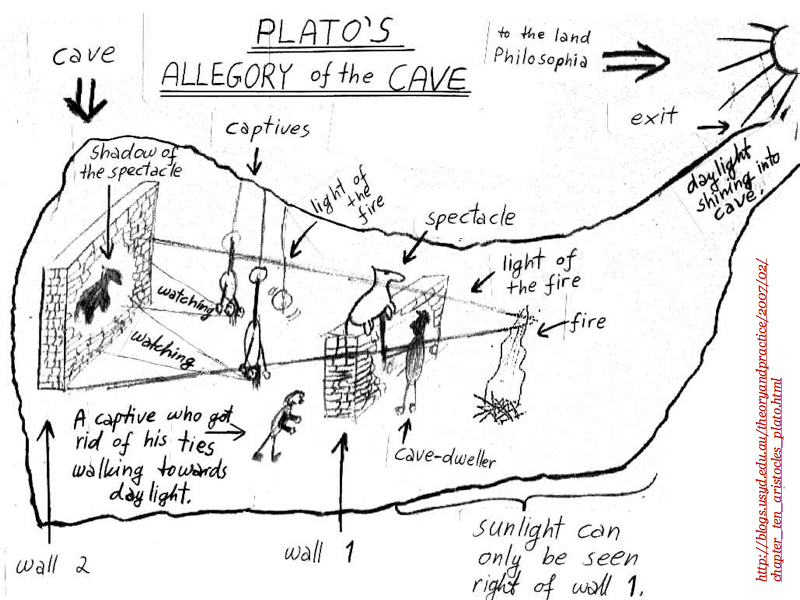 PLATO'S
ALLEGORY of the CAVE
to the land
Philosophia
cave
exit
captives
daylight
shining into
cave.
shadow of
the spectacle
light of
the
fire
spectacle
light of
the fire
watching
fire
watching
A captive who got
rid of his ties
walking towards
daylight.
cave-dweller
wall 2
wall 1
sunlight can
only be seen
right of wall 1.
http://blogs.usyd.edu.au/theoryandpractice/2007/02/
chapter_ten_aristocles_plato.html